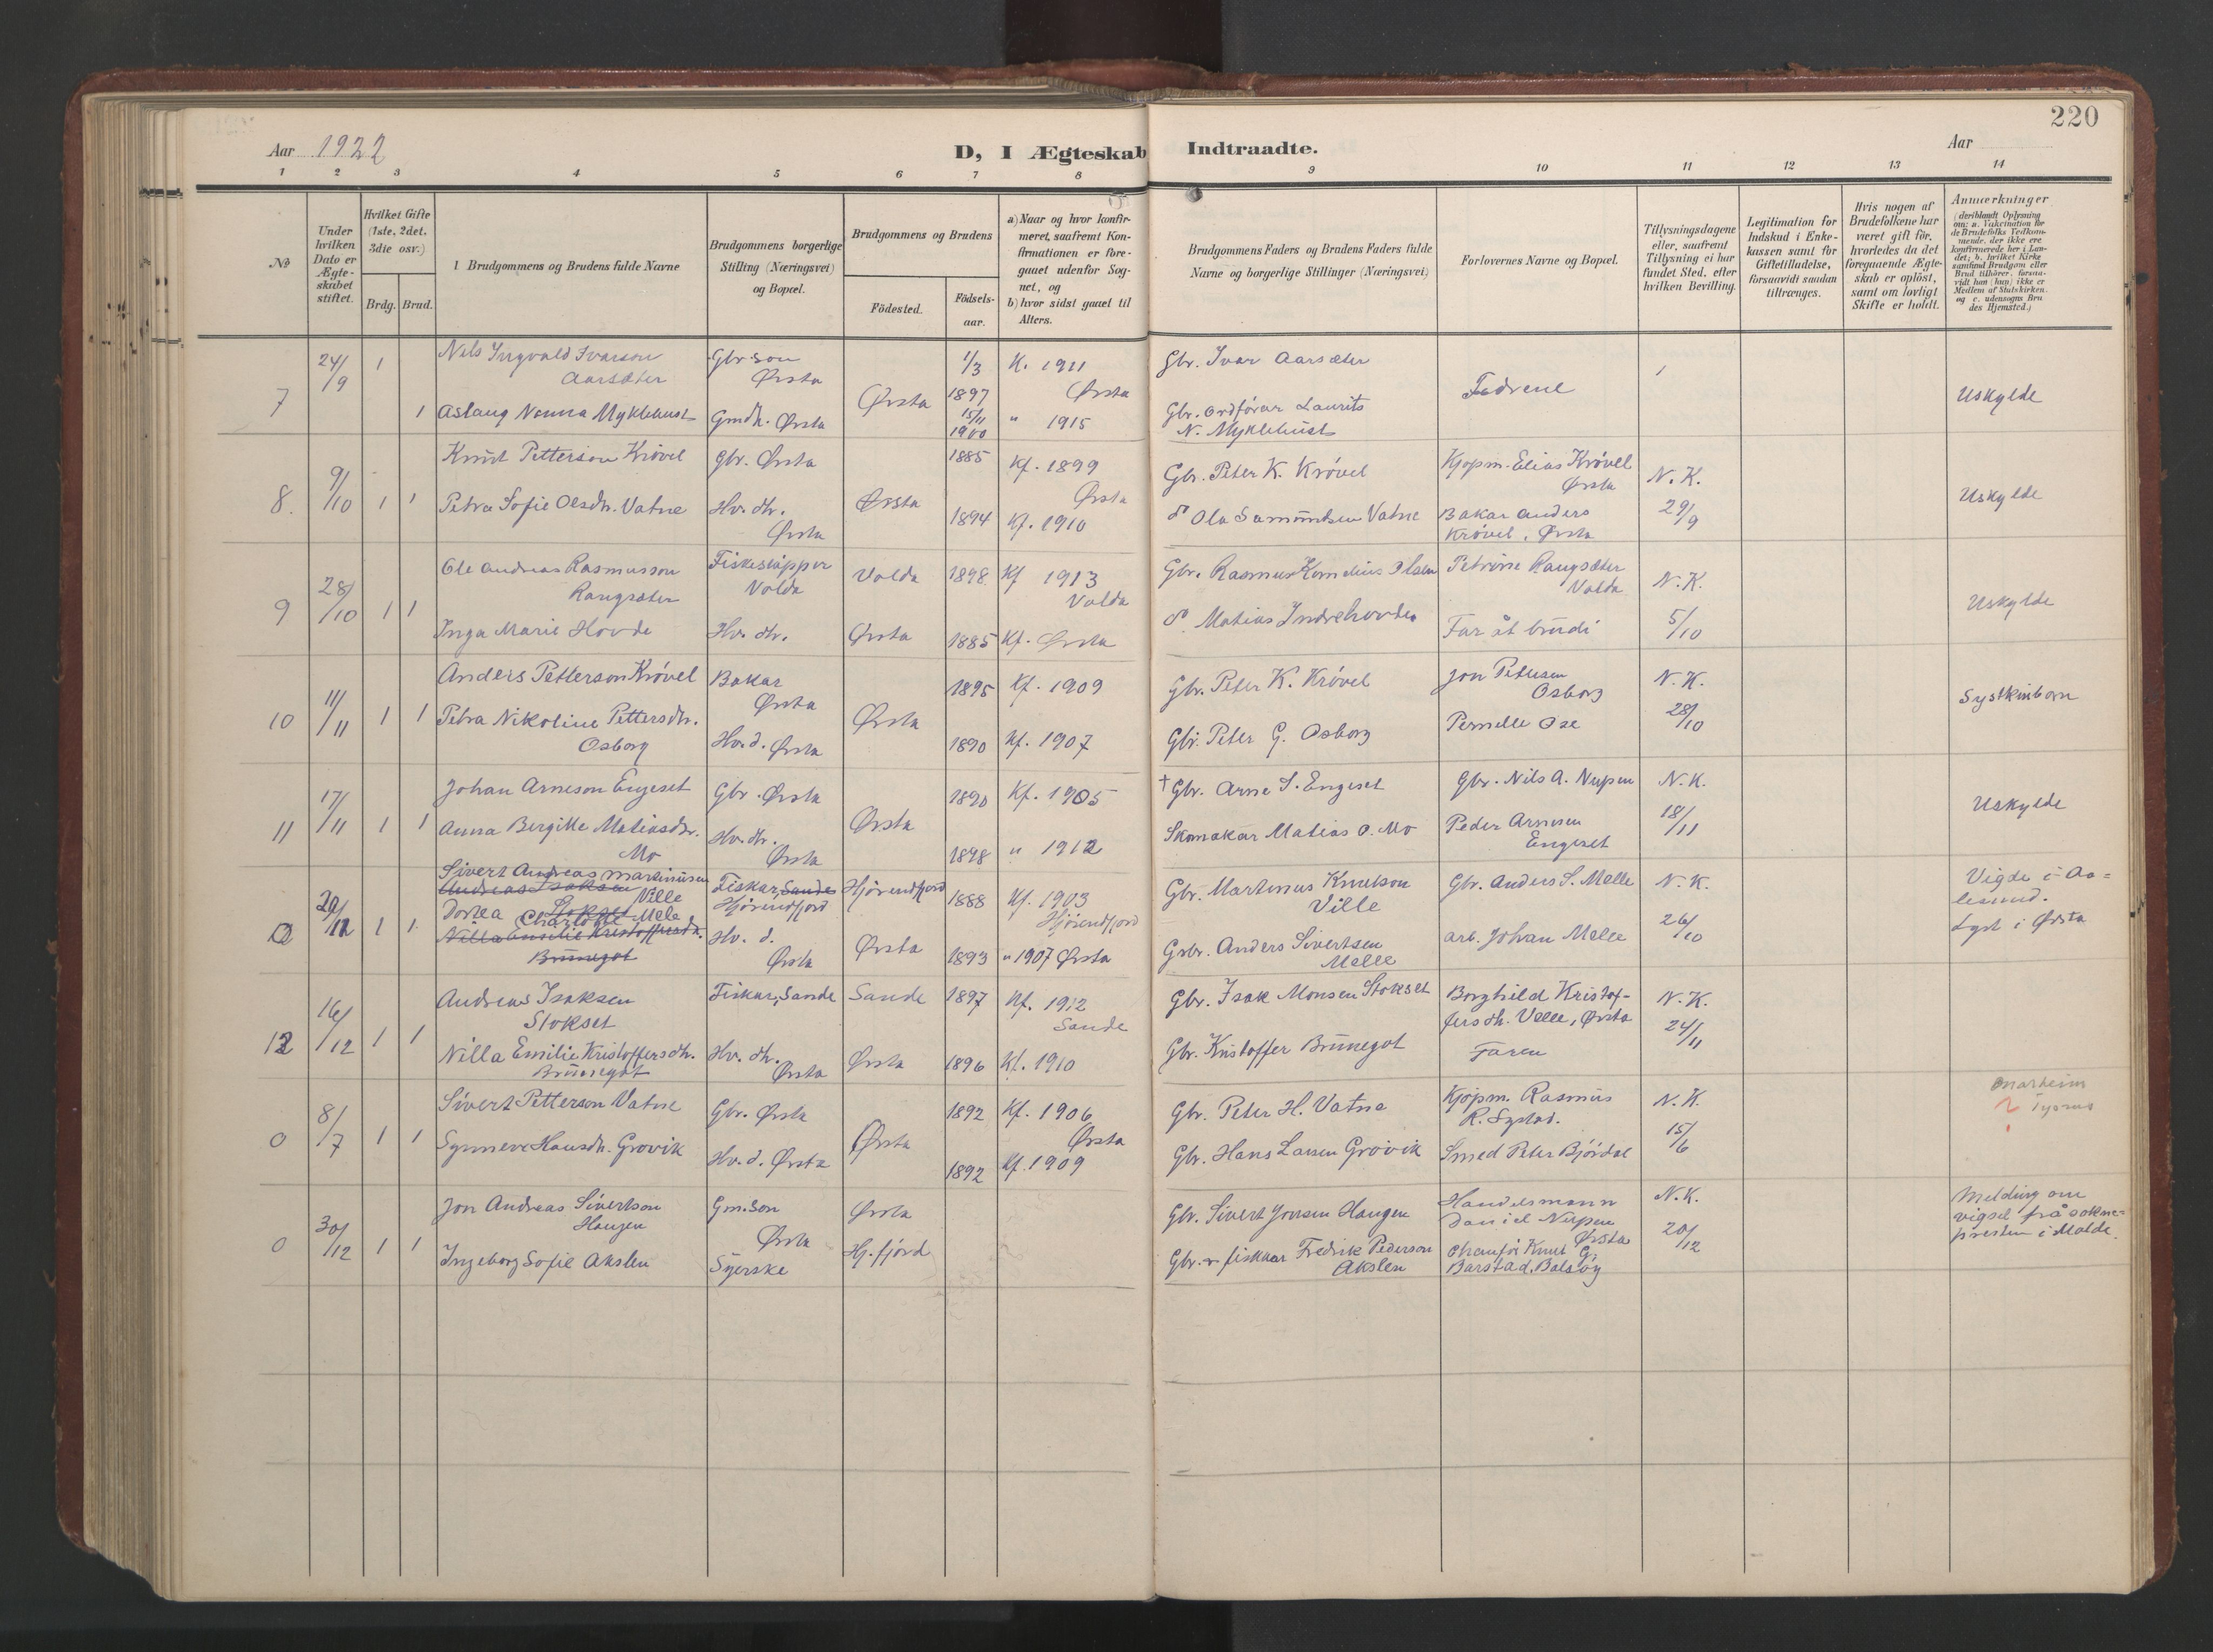 220
Aar 1922
D, I Ægteskab Indtraadte.
Aar
1 2 3 4 5 6 7 8 9 10 11 12 13 14
№
Under hvilken Dato er Ægte-skabet stiftet.
Hvilket Gifte (1ste, 2det, 3die osv.)
Brdg. Brud.
Brudgommens og Brudens fulde Navne
Brudgommens borgerlige Stilling (Næringsvei) og Bopæl.
Brudgommens og Brudens
Födested.
Födsels-aar.
a) Naar og hvor konfir-meret, saafremt Kon-firmationen er fore-gaaet udenfor Sog-net, og
b) hvor sidst gaaet til Alters.
Brudgommens Faders og Brudens Faders fulde Navne og borgerlige Stillinger (Næringsvei)
Forlovernes Navne og Bopæl.
Tillysningsdagene eller, saafremt Tillysning ei har fundet Sted, efter hvilken Bevilling.
Legitimation for Indskud i Enke-kassen samt for Giftetilladelse, forsaavidt saadan tiltrænges.
Hvis nogen af Brudefolkene har været gift för, hvorledes da det foregaaende Ægte-skab er oplöst, samt om lovligt Skifte er holdt.
Anmærkninger (deriblandt Oplysning om: a. Vakcination for de Brudefolks Vedkom-mende, der ikke ere konfirmerede her i Lan-det; b. hvilket Kirke samfund Brudgom eller Brud tilhörer, forsaa-vidt han (hun) ikke er Medlem af Statskirken, og c. udensogns Bru des Hjemsted.)
7 24/9 1 Nils Ingvald Ivarson Aarsæter Gbr. son Ørsta Ørsta 1/3 1897 K. 1911 Ørsta Gbr. Ivar Aarsæter Fedrene Uskylde
1 Aslaug Nanna Myklebust Gmdh. Ørsta 15/11 1900 " 1915 Gbr. ordførar Laurits N. Myklebust
8. 9/10 1 1 Knut Petterson Krövel Gbr. Ørsta Ørsta 1885 Kf. 1899 Ørsta Gbr. Peter K. Krövel Kjøpm. Elias Krövel Ørsta N. K. 29/9 Uskylde
Petra Sofie Olsdh. Vatne Hv. dh. Ørsta 1894 Kf. 1910 Ola Samundsen Vatne Bakar Anders Krövel, Ørsta
9 28/10 1 1 Ole Andreas Rasmusson Rangsæter Fiskeskipper Volda Volda 1898 Kf 1913 Volda Gbr. Rasmus Kornelius Olsen Petrine Rangsæter Volda N. K. 5/10 Uskylde
Inga Marie Hovde Hv. dh. Ørsta 1885 Kf. Ørsta Matias Indrehovde Far åt brudi
10 11/11 1 1 Anders Petterson Krövel Bakar Ørsta Ørsta 1895 Kf. 1909 Gbr. Peter K. Krövel Jon Petersen Osborg N. K. 28/10 Syskinborn
Petra Nikoline Pettersdh. Osborg Hv. d. Ørsta 1890 Kf. 1907 Gbr. Peter G. Osborg Pernille Ose
11 17/11 1 1 Johan Arneson Engeset Gbr. Ørsta Ørsta 1890 Kf. 1905 † Gbr. Arne S. Engeset Gbr. Nils A. Nupen N. K. 18/11 Uskylde
Anna Bergitte Matiasdr. Mo Hv. dh. Ørsta 1898 " 1912 Skomakar Matias O. Mo Peder Arnesen Engeset
0 1 1 Sivert Andreas Martinusen Ville Andreas Isaksen Stokset Fiskar, Sande Hjörundfjord Hjörundfjord 1888 Kf. 1903 Hjörundfjord Gbr. Martinus Knutson Ville Gbr. Anders S. Melle N. K. 26/10 Vigde i Aa=lesund. Lyst i Ørsta
Dortea Charlotte Mele Nilla Emilie Kristoffersdh. Brunegot Hv. d. Ørsta Ørsta 1893 " 1907 Ørsta Gbr. Anders Sivertsen Melle arb. Johan Melle
12 16/12 1 1 Andreas Isaksen Stokset Fiskar, Sande Sande 1897 Kf. 1912 Sande Gbr. Isak Monsen Stokset Borghild Kristof-fersdh. Velle, Ørsta N. K. 24/11
Nilla Emilie Kristoffersdh. Brunegot Hv. dh. Ørsta Ørsta 1896 Kf. 1910 Gbr. Kristoffer Brunegot Faren
0 8/7 1 1 Sivert Petterson Vatne Gbr. Ørsta Ørsta 1892 Kf. 1906 Ørsta Gbr. Peter H. Vatne Kjøpm. Rasmus R. N. K. 15/6
Synneve Hansdh. Grovik Hv. d. Ørsta 1892 Kf. 1909 Gbr. Hans Larsen Grövik Smed Peter Björdal
0 30/12 1 1 Jon Andreas Sivertson Haugen Gm. Son Ørsta Ørsta Gbr. Sivert Jonsen Haugen Handelsmann Daniel Nupen Ørsta N. K. 20/12 Melding om vigsel frå sokne=presten i Molde.
Ingeborg Sofie Akslen Syerske Hj.fjord Gbr. & fiskar Fredrik Pederson Akslen Chauför Knut G. Barstad, Bolsöy